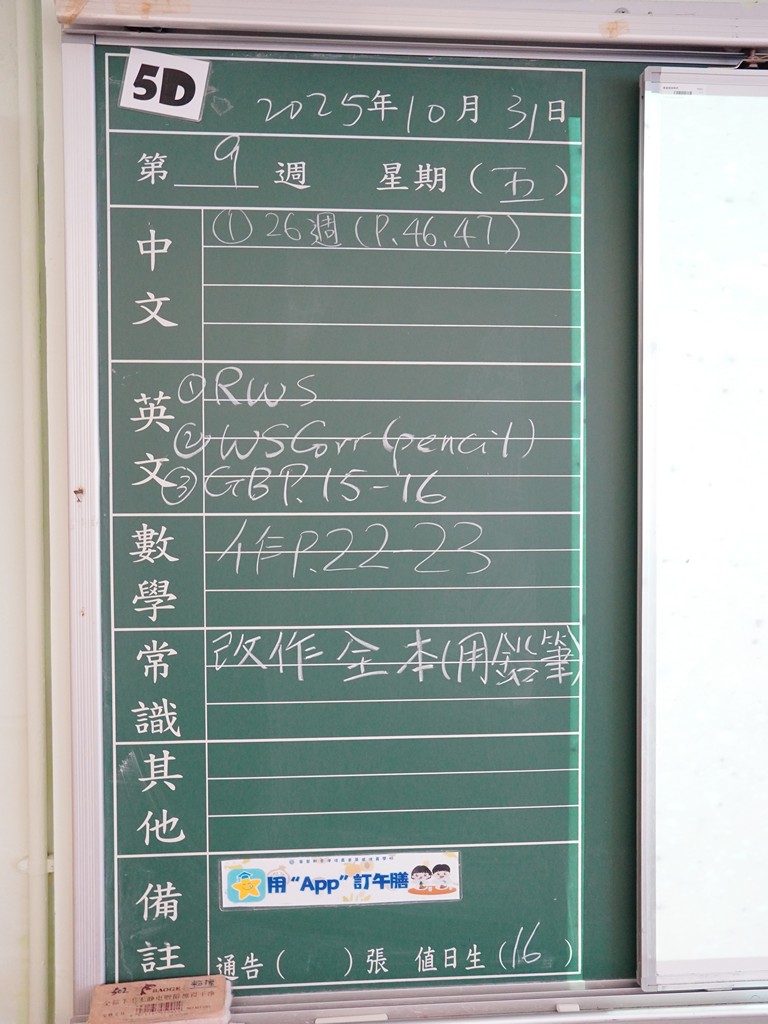 5D
2025年10月31日
第9週 星期(五)
中文
① 26週(P.46.47)
英文
① RWS
② WS Corr (pencil)
③ GB P.15-16
數學
作P.22-23
常識
改作全本(用鉛筆)
其他
備註
用“App”訂午膳
通告( )張 值日生(16)
BAOGE